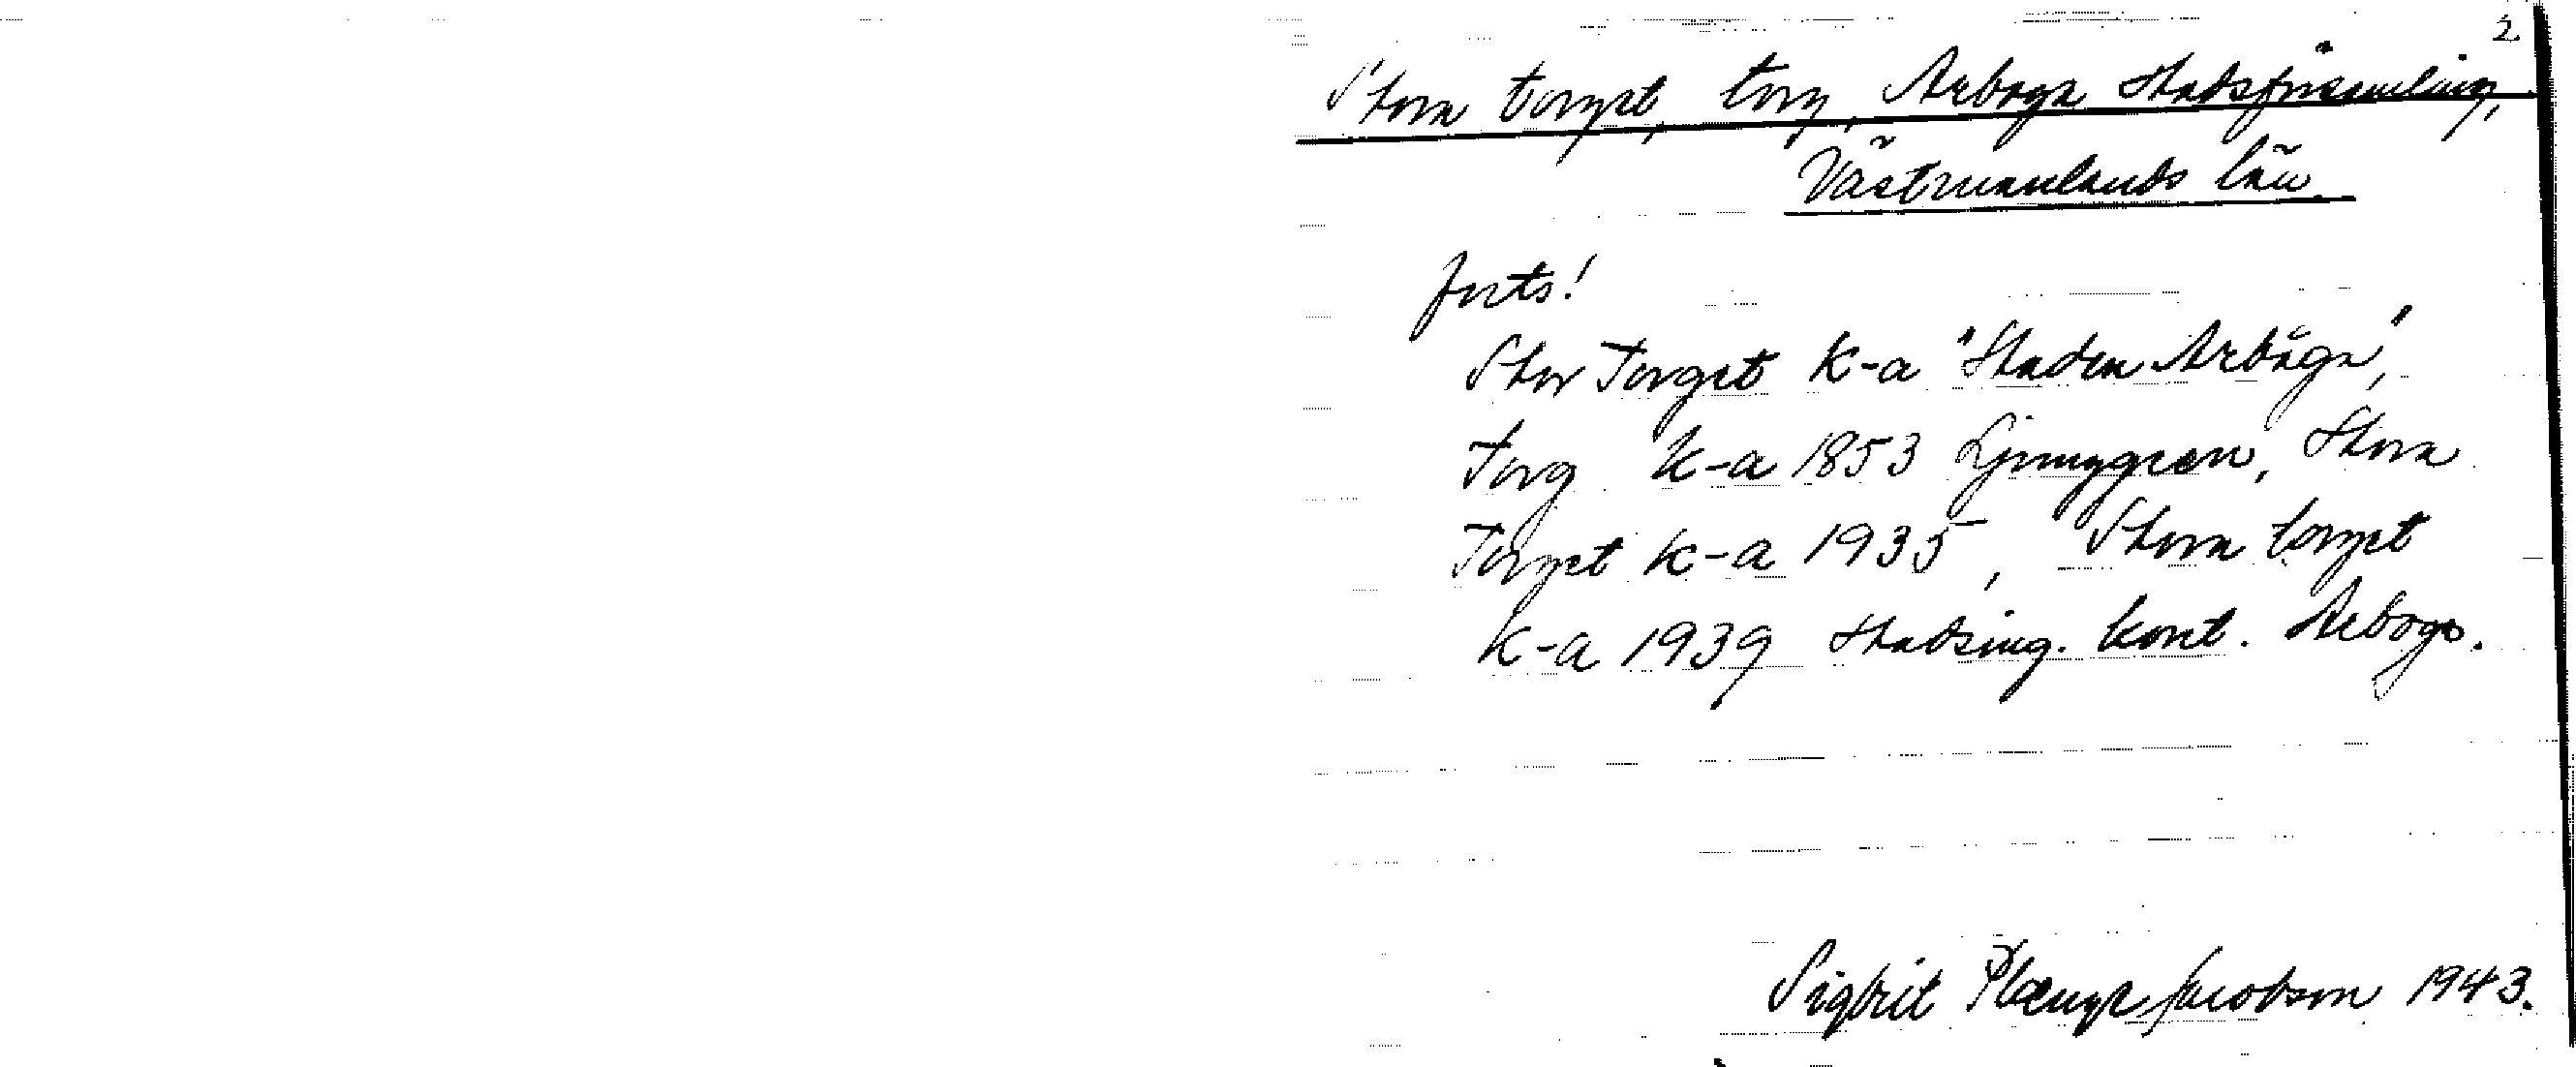 2.
Stora torget, torg, Arboga stadsförsamling,
Västmanlands län.
forts!
Stor Torget K-a "Staden Arbåga",
Torg K-a 1853 Ljunggren, Stora
Torget K-a 1935, Stora torget
K-a 1939 Stadsing. kont. Arboga.
Sigbrit Plænge Jacobson 1943.